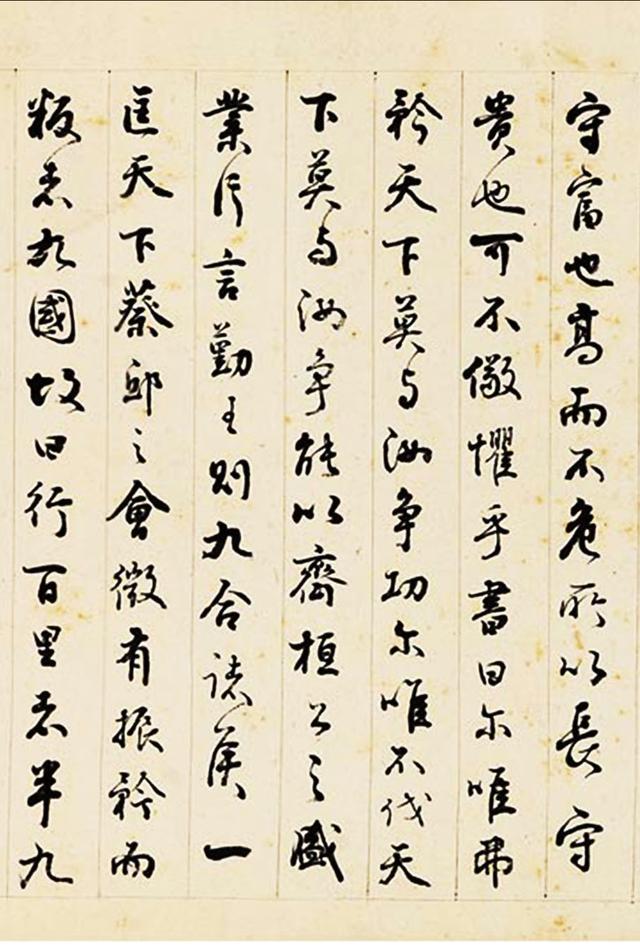 守富也高而不危所以長守
貴也可不儆懼乎書曰尔唯弗
矜天下莫与汝争功尔唯不伐天
下莫与汝争能以齊桓公之盛
業片言勤王則九合諸侯一
匡天下葵邱之會微有振矜而
叛者九國故曰行百里者半九